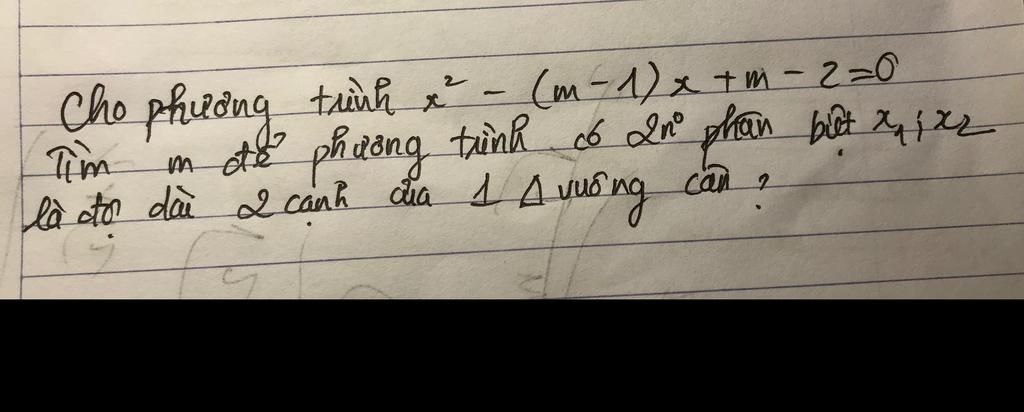 Cho phương trình x² - (m-1)x + m - 2 = 0
Tìm m để phương trình có 2n⁰ phân biệt x₁; x₂
là độ dài 2 cạnh của 1 Δ vuông cân?